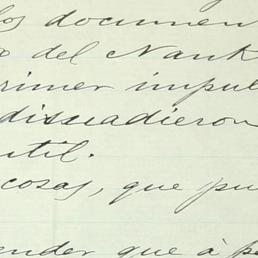 los documen
o del Nank
rimer impul
disuadieron
util.
cosas, que pu
ender que à pe